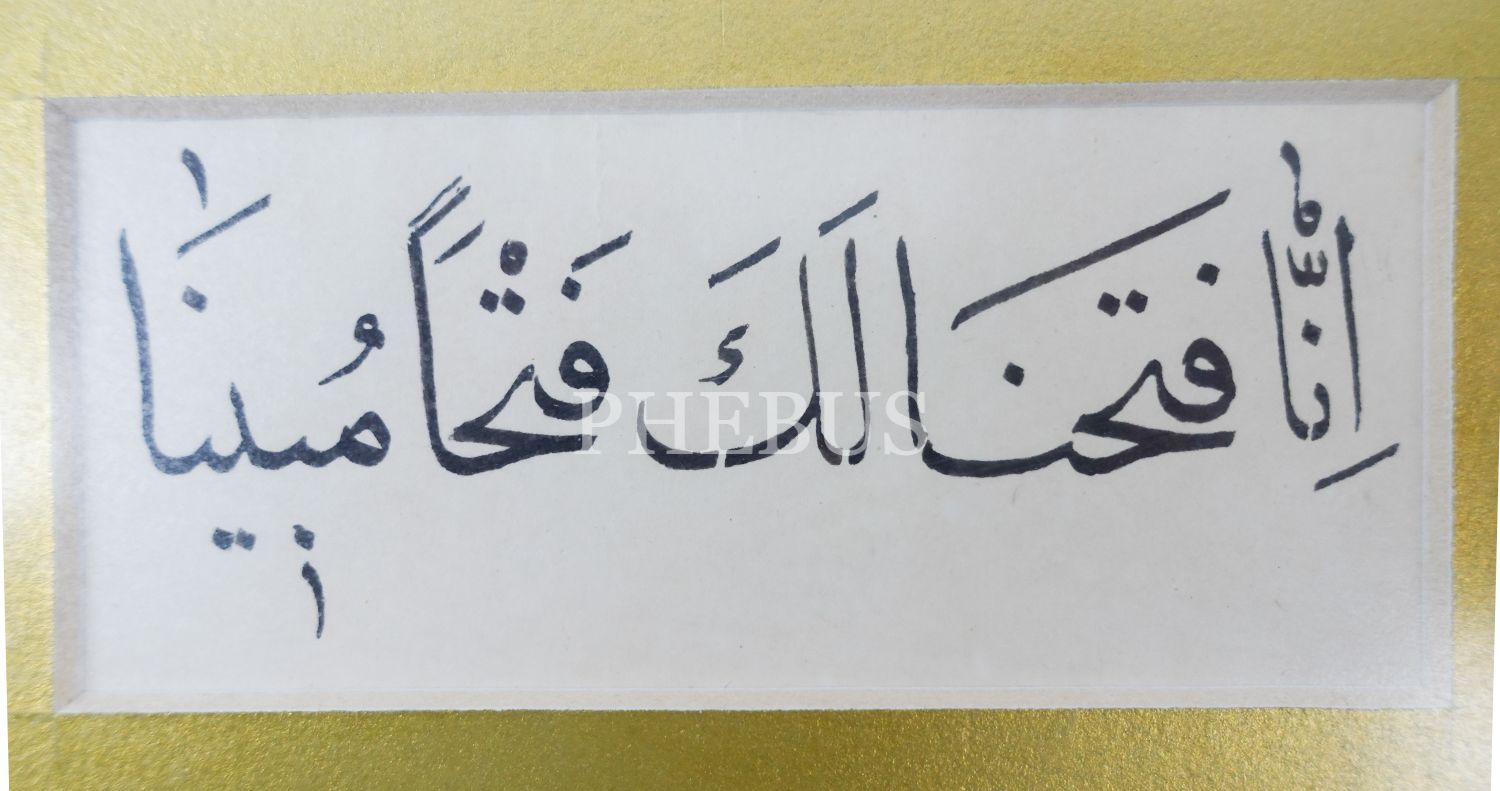 اِنَّا فَتَحْنَا لَكَ فَتْحاً مُبٖينَاۙ
PHEBUS